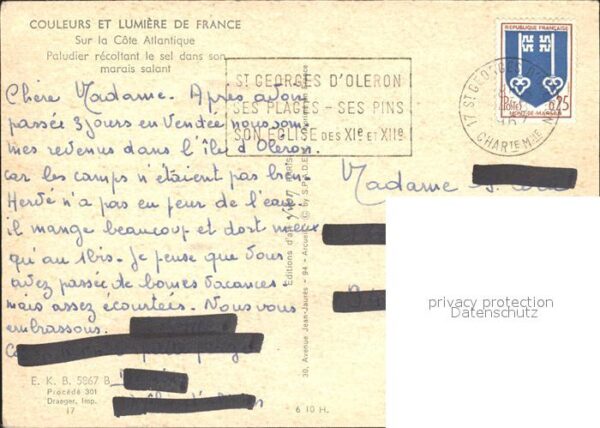 COULEURS ET LUMIÈRE DE FRANCE
Sur la Côte Atlantique
Paludier récoltant le sel dans son
marais salant
Chère Madame. Après avoir
passée 3 jours en Vendée nous som
mes revenus dans l'île d'Oleron.
car les camps n'étaient pas bien.
Hervé n'a pas eu peur de l'eau.
il mange beaucoup et dort mieux
qu'au 1bis. Je pense que vous
avez passée de bonnes vacances.
mais assez écourtées. Nous vous
embrassons.
E. K. B. 5867 B
Procédé 301
Draeger, Imp.
17
6 10 H.
ST GEORGES D'OLERON
SES PLAGES - SES PINS
SON EGLISE DES XIe ET XIIe
REPUBLIQUE FRANÇAISE
POSTES 0,25
MONT-DE-MARSAN
17 ST GEORGES D'O
CHARTE MME
Editions d'art yvon
30, Avenue Jean-Jaurès - 94 - Arcueil
Madame
privacy protection
Datenschutz